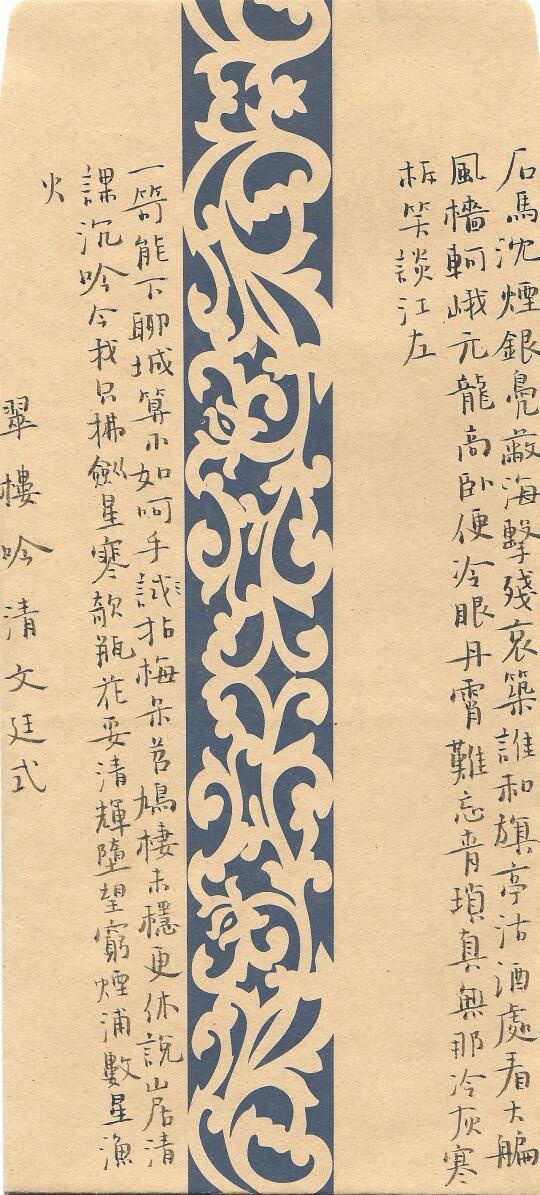 石馬沈煙銀鳧蔽海擊殘哀築誰和旗亭沽酒處看大艑
風檣軻峨元龍高臥便冷眼丹霄難忘青瑣真無那冷灰寒
柝笑談江左
一笴能下聊城算不如呵手試拈梅朵苕鳩棲未穩更休說山居清
課沉吟今我只拂劍星寒欹瓶花妥清輝墮望窮煙浦數星漁
火
翠樓吟 清 文廷式